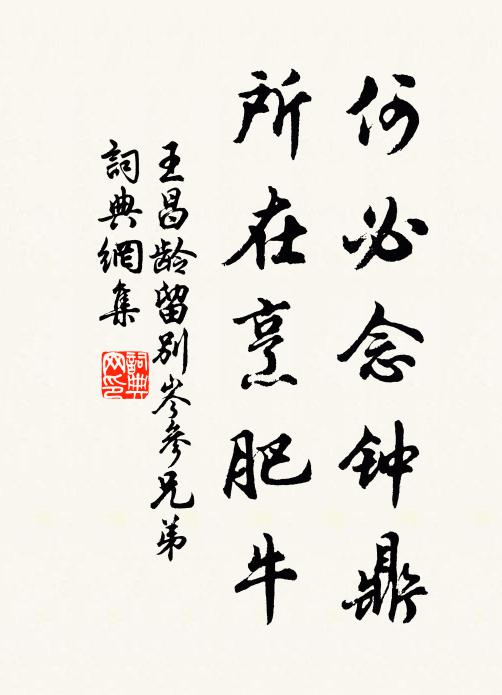 何必念钟鼎
所在烹肥牛
王昌龄留别岑参兄弟
詞典網集
詞典网印